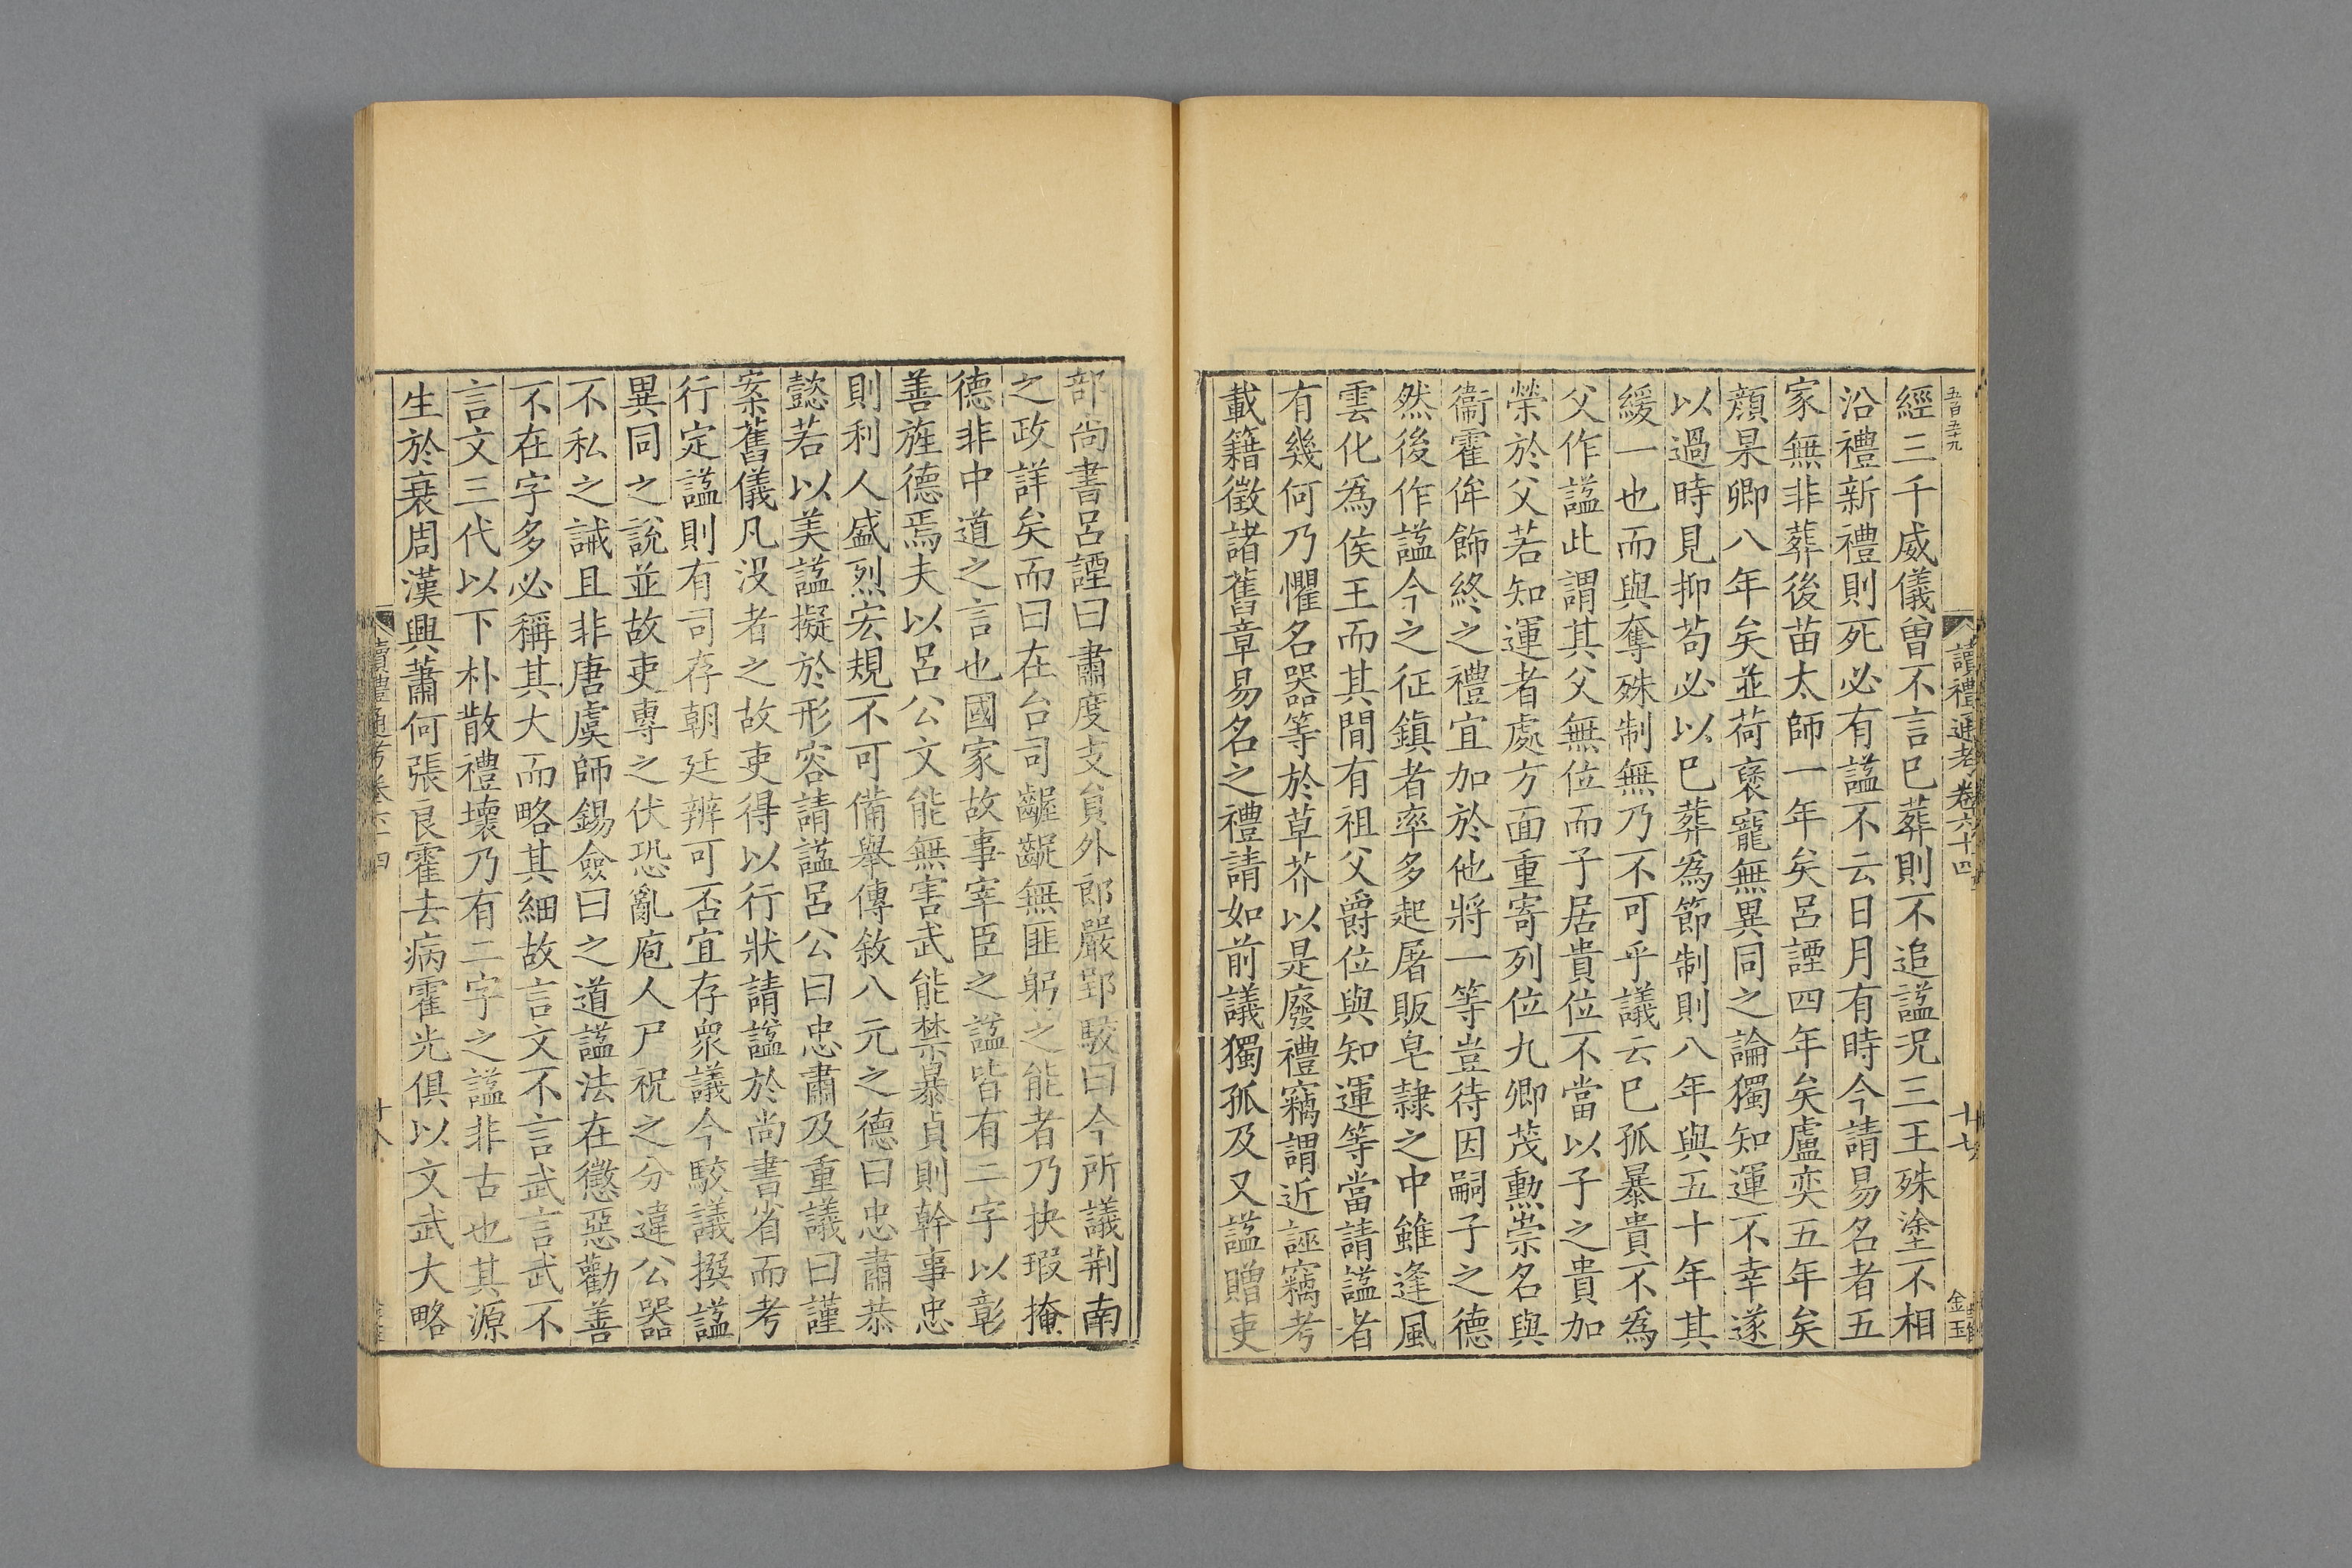 五百五十九
讀禮通考卷六十四
十七
金玉
經三千威儀曾不言已葬則不追諡況三王殊塗不相
沿禮新禮則死必有諡不云日月有時今請易名者五
家無非葬後苗太師一年矣呂諲四年矣盧奕五年矣
顏杲卿八年矣並荷褒寵無異同之論獨知運不幸遂
以過時見抑苟必以已葬爲節制則八年與五十年其
緩一也而與奪殊制無乃不可乎議云已孤暴貴不爲
父作諡此謂其父無位而子居貴位不當以子之貴加
榮於父若知運者處方面重寄列位九卿茂勳崇名與
衞霍侔飾終之禮宜加於他將一等豈待因嗣子之德
然後作諡今之征鎮者率多起屠販皂隷之中雖逢風
雲化爲侯王而其間有祖父爵位與知運等當請諡者
有幾何乃懼名器等於草芥以是廢禮竊謂近誣竊考
載籍徵諸舊章易名之禮請如前議獨孤及又諡贈吏
部尚書呂諲曰肅度支員外郎嚴郢駮曰今所議荆南
之政詳矣而曰在台司齷齪無匪躬之能者乃抉瑕掩
德非中道之言也國家故事宰臣之諡皆有二字以彰
善旌德焉夫以呂公文能無害武能禁暴貞則幹事忠
則利人盛烈宏規不可備舉傳敘八元之德曰忠肅恭
懿若以美諡擬於形容請諡呂公曰忠肅及重議曰謹
案舊儀凡没者之故吏得以行狀請諡於尚書省而考
行定諡則有司存朝廷辨可否宜存衆議今駮議撰諡
異同之說並故吏專之伏恐亂庖人尸祝之分違公器
不私之誡且非唐虞師錫僉曰之道諡法在懲惡勸善
不在字多必稱其大而略其細故言文不言武言武不
言文三代以下朴散禮壞乃有二字之諡非古也其源
生於衰周漢興蕭何張良霍去病霍光俱以文武大略
讀禮通考卷六十四
十八